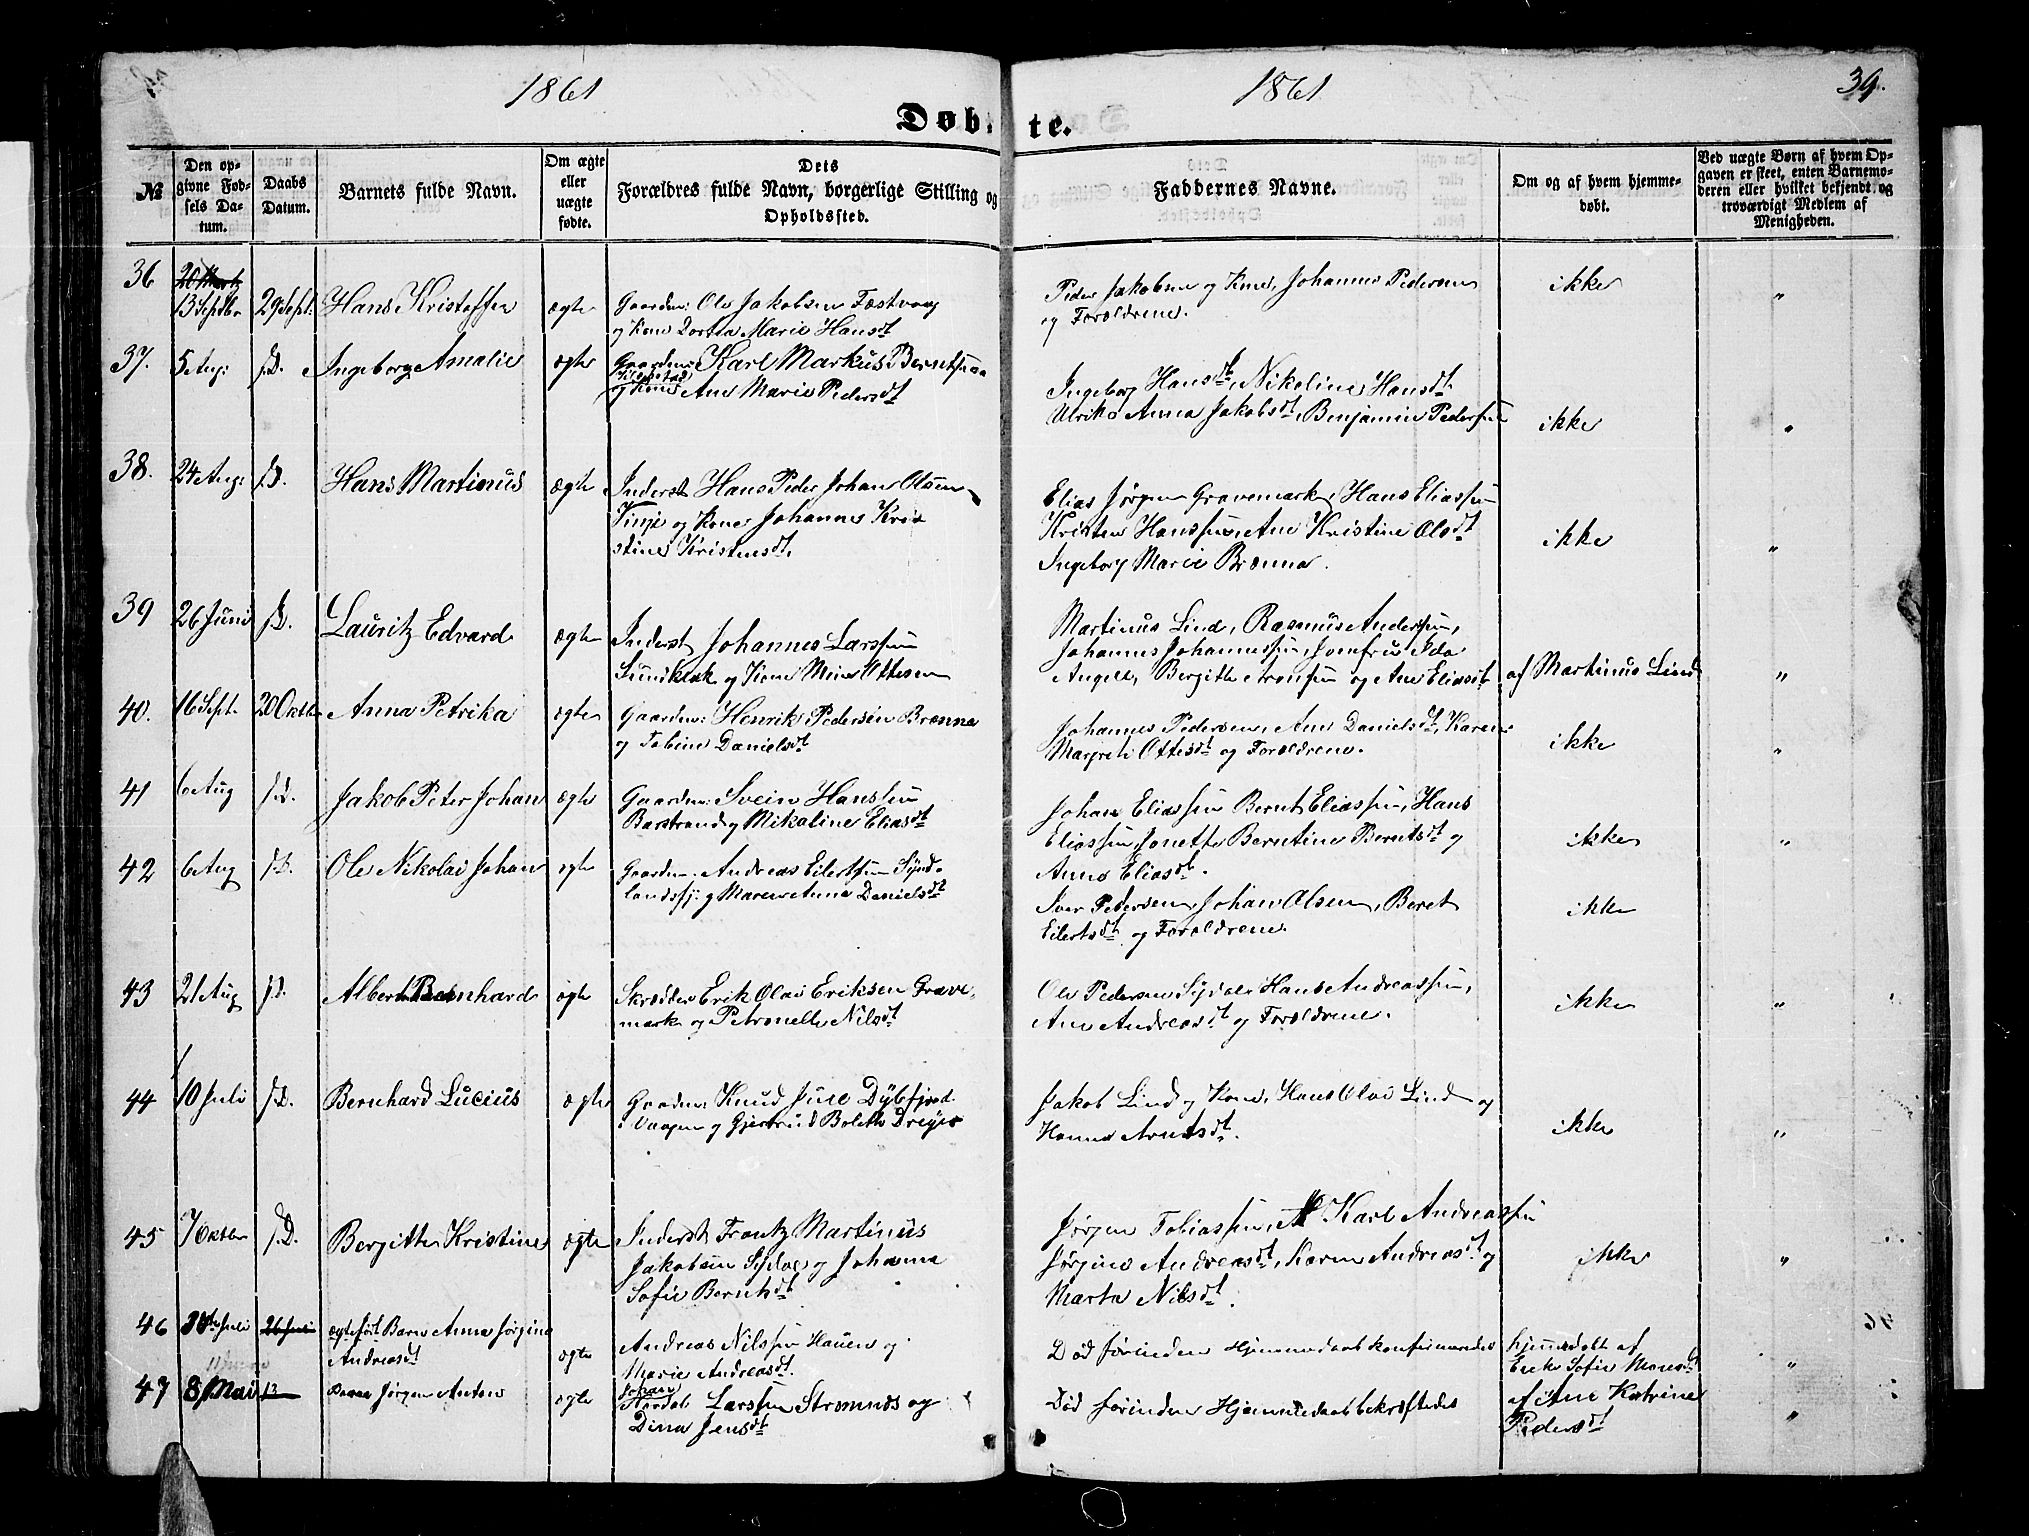 1861
1861
39.
Døb-
te.
№
Den opgivne Fødsels Datum.
Daabs Datum.
Barnets fulde Navn.
Om ægte eller uægte fødte.
Dets Forældres fulde Navn, borgerlige Stilling og Opholdssted.
Faddernes Navne.
Om og af hvem hjemmedøbt.
Ved uægte Børn af hvem Opgaven er skeet, enten Barnemoderen eller hvilket bekjendt og troværdigt Medlem af Menigheden.
36 13 Septbr 29 Sept: Hans Kristoffer ægte Gaardm: Ole Jakobsen Fæstvaag
og Kone Dortea Marie Hansdt
Peder Jakobsen og Kone, Johannes Pedersen
og Forældrene.
ikke "
37. 5 Aug: s.D. Ingeborg Amalie ægte Gaardm: Karl Markus Berntsen
og Kone Ane Marie Pedersdt
Ingeborg Hansdt, Nikoline Hansdt
Ulrike Anna Jakobsdt, Benjamin Pedersen
ikke "
38. 24 Aug: s.D. Hans Martinus ægte Inderst Hans Peder Johan Olsen
Vinje og Kone Johanne Kri-
stine Kristensdt.
Elias Jørgen Gravemark, Hans Eliassen
Kristen Hanssen, Ane Kristine Olsdt
Ingeborg Marie Brænna.
ikke "
39 26 Juni s.D. Lauritz Edvard ægte Inderst Johannes Larssen
og Kone Ottesen
Martinus Lind, Rasmus Anderssen,
Johannes Johannessen, Jomfru Ida
Angell, Bergitte Aronsen og Ane Eliasdt
af Martinus Lind "
40. 16 Sept. 20 Oktbr Anna Petrika ægte Gaardm: Henrik Pedersen Brænna
og Tobine Danielsdt
Johannes Pedersen, Ane Danielsdt, Karen
Margreti Ottesdt og Forældrene.
ikke "
41 6 Aug s.D. Jakob Peter Johan ægte Gaardm: Svein Hanssen
Barstrand og Mikaline Eliasdt
Johan Eliassen Bernt Eliassen, Hans
Eliassen, Jonette Berntine Berntsdt og
Anne Eliasdt.
ikke "
42 6 Aug s.D. Ole Nikolai Johan ægte Gaardm: Andreas Eilertsen Sund-
landsfj: og Maren Anna Danielsdt
Iver Pedersen, Johan Olsen, Beret
Eilertsdt og Forældrene.
ikke
43 21 Aug s.D. Albert Bernhard ægte Skrædder Erik Olai Eriksen Grave-
mark og Petronelle Nilsdt
Ole Pedersen Hans Andreassen,
Ane Andreasdt og Forældrene.
ikke "
44 10 Juli s.D. Bernhard Lucius ægte Gaardm: Knud Jure Dybfjord
Vaagen og Gjertrud Bolette Dreyer
Jakob Lind og Kone, Hans Olai Lind og
Hanna Arntsdt.
ikke "
45 7 Oktbr s.D. Bergitte Kristine ægte Inderst Frantz Martinus
Jakobsen og Johanna
Sofie Berntsdt
Jørgen Tobiassen, Karl Andreassen
Jørgine Andreasdt, Karen Andreasdt og
Marta Nilsdt.
ikke "
46 30te Juli 26 Juni ægtefødt Barn Anna Jørgine
Andreasdt
ægte Andreas Nilssen Hauen og
Marie Andreasdt.
Død førinden Hjemmedaab konfirmeredes
hjemmedøbt af
Sofie Monsdt
"
47 8 Mai 13 Jørgen Anton ægte Johan Larssen Strømnes og
Dina Jensdt
Død førinden Hjemmedaab bekræftedes
af Ane Katrine
Pedersdt
"